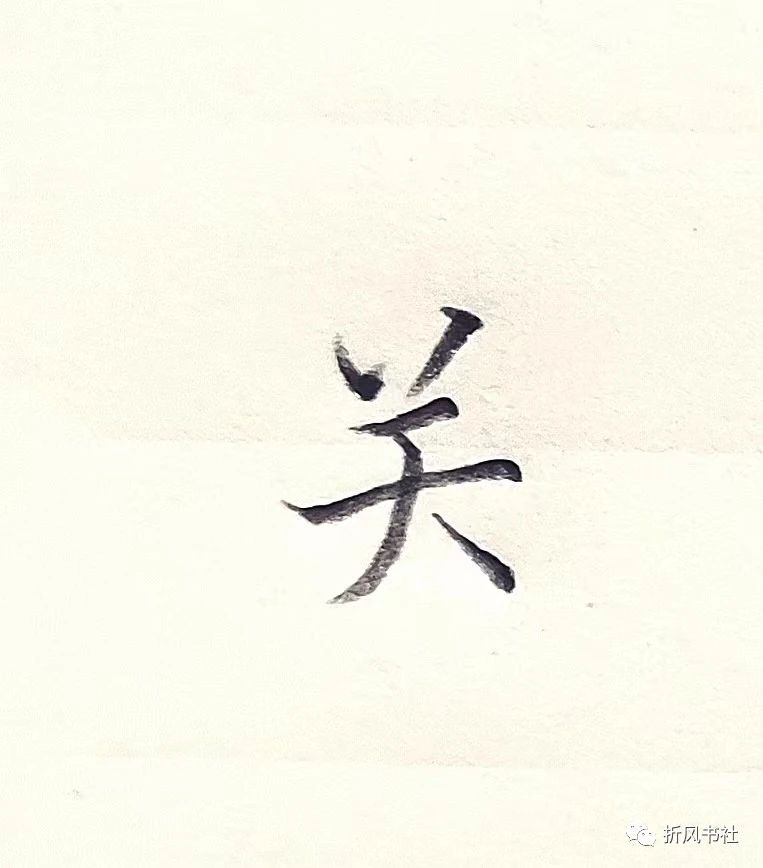 关
折风书社